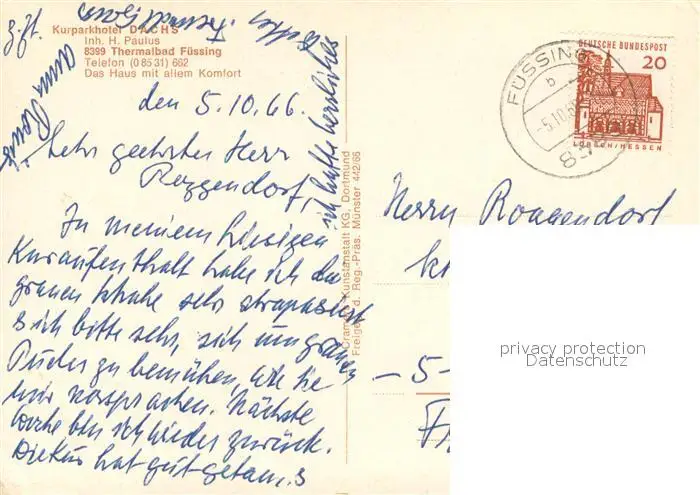 z. Zt.
Kurparkhotel DACHS
Inh. H. Paulus
8399 Thermalbad Füssing
Telefon (0 85 31) 662
Das Haus mit allem Komfort
den 5.10.66.
Sehr geehrter Herr
Roggendorf,
In meinem hiesigen
Kuraufenthalt habe ich die
grauen Schuhe sehr strapaziert
sich bitte sehr, sich um grauen
Puder zu bemühen, wie Sie
mir versprachen. Nächste
Woche bin ich wieder zurück.
Die Kur hat gut getan.
ich hoffe herzliches
Anna
Cramers Kunstanstalt KG, Dortmund
Freigegeb. d. Reg.-Präs. Münster 442/66
FÜSSING
b
-5.10.
DEUTSCHE BUNDESPOST
20
LORSCH/HESSEN
Herrn Roggendorf
-5-
privacy protection
Datenschutz